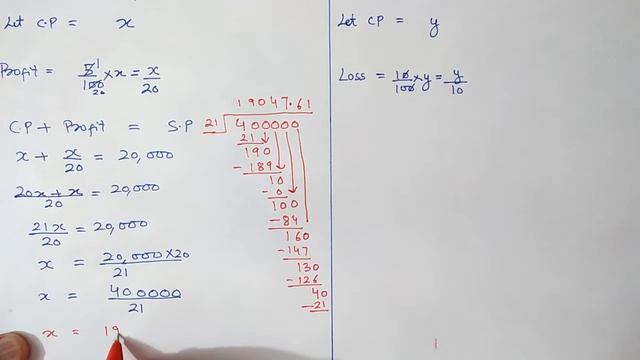 Let C.P = x
Profit = 5/100 × x = x/20
1
20
C.P + Profit = S.P
x + x/20 = 20,000
20x + x/20 = 20,000
21x/20 = 20,000
x = 20,000 × 20/21
x = 400000/21
x = 19
19047.61
21 400000
21
190
- 189
10
- 0
100
- 84
160
- 147
130
- 126
40
- 21
Let CP = y
Loss = 10/100 × y = y/10